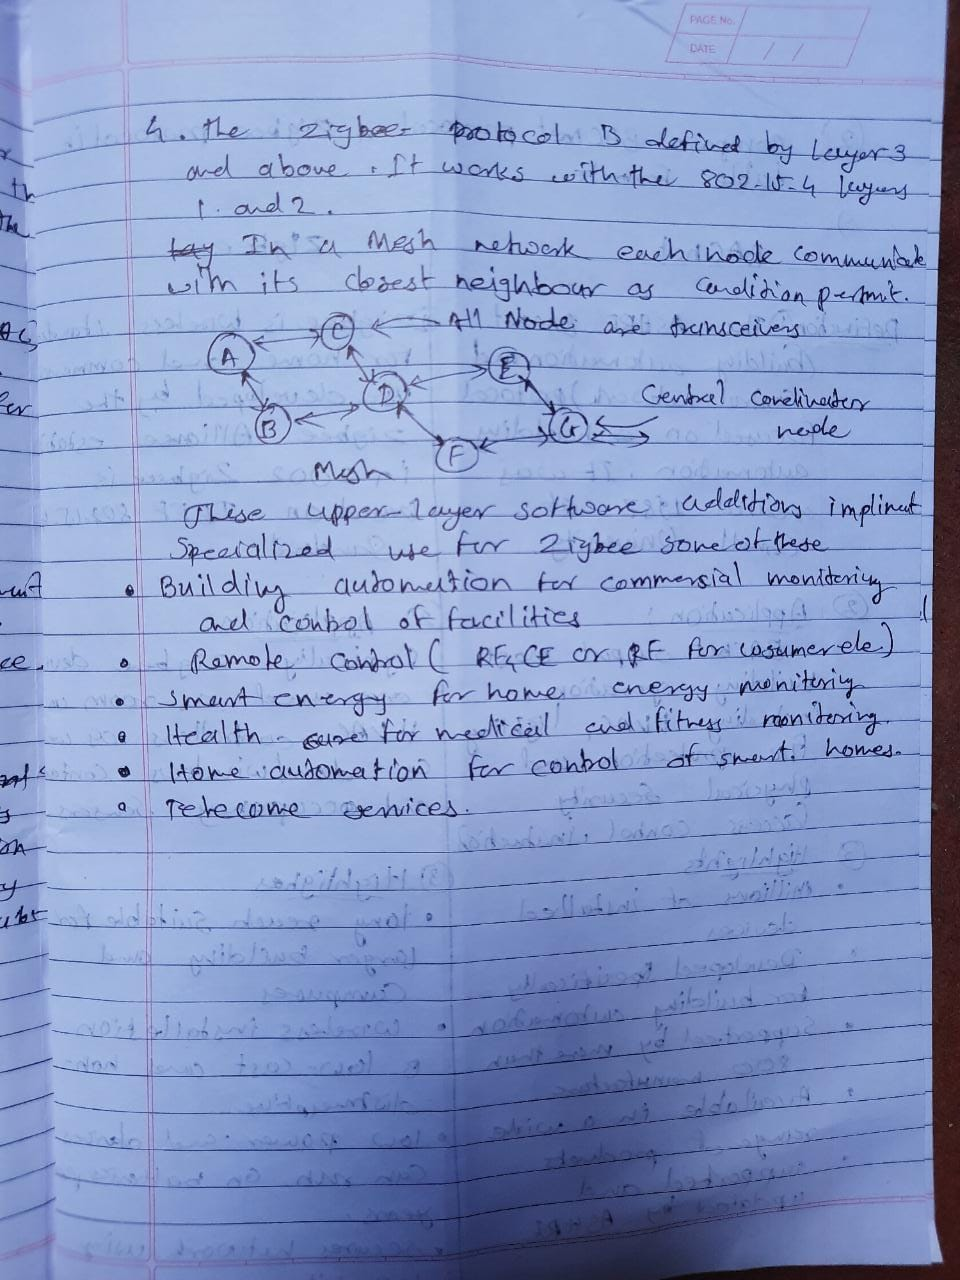 PAGE No.
DATE / /
4. The zigbee protocol is defined by layer 3
and above. It works with the 802.15.4 layers
1. and 2.
In a Mesh network each node communicate
with its closest neighbour as condition permit.
C ← All Node are transceivers
A
E
D
Central coordinator
B G node
F
Mesh
These upper-layer software additions implimet
specialized use for zigbee some of these
• Building automation for commersial monitoring
and control of facilities
• Remote control ( RF4CE or RF for cosumer ele.)
• smart energy for home energy monitoring
• Health care for medical and fitness monitoring.
• Home automation for control of smart homes.
• Telecome services.